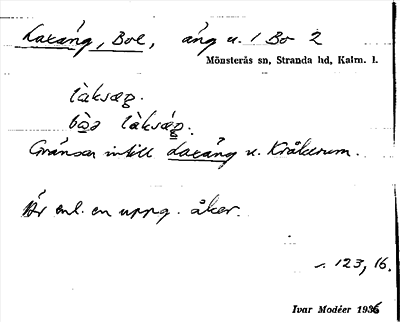 Laxäng, Boe, äng u. 1 Bo 2
Mönsterås sn, Stranda hd, Kalm. l.
làksæg.
bò̱ə làksǽg.
Gränsar intill Laxäng u. Kråkerum.
Är enl. en uppg. åker.
s. 123, 16.
Ivar Modéer 1936